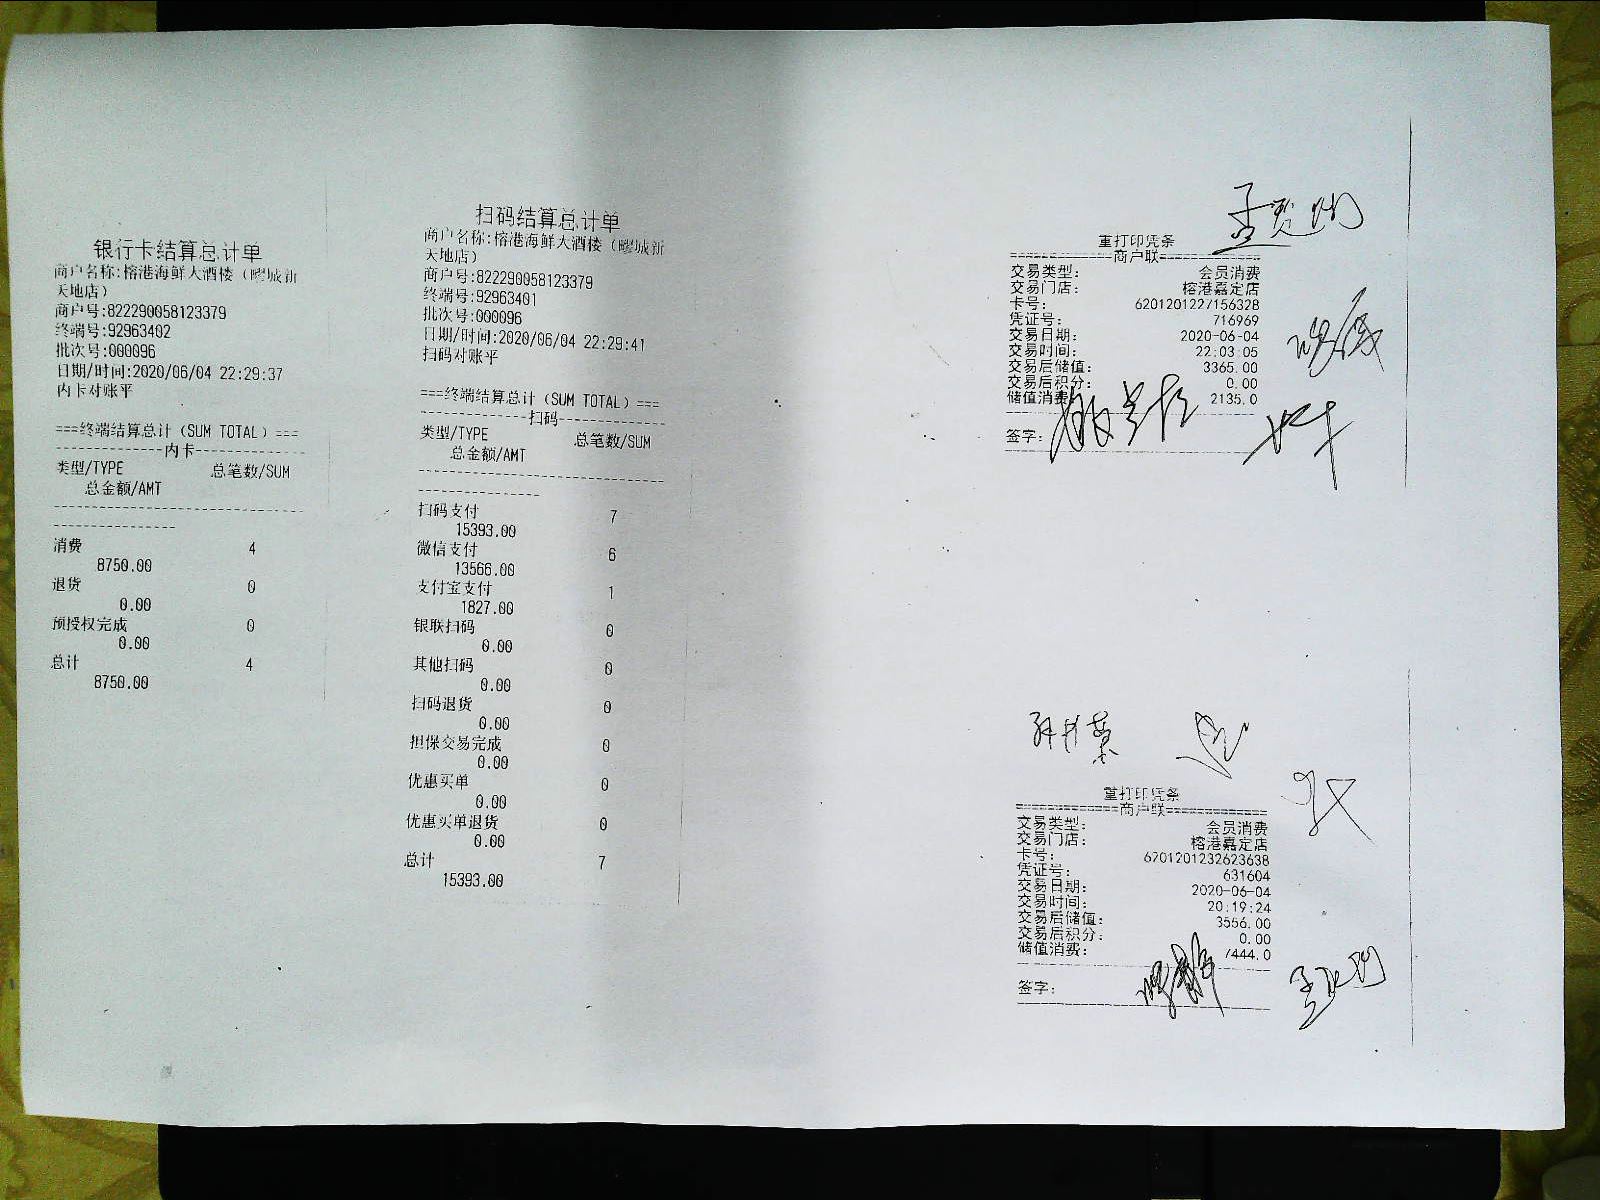 银行卡结算总计单
商户名称:榕港海鲜大酒楼（疁城新
天地店）
商户号:822290058123379
终端号:92963402
批次号:000096
日期/时间:2020/06/04 22:29:37
内卡对账平
===终端结算总计（SUM TOTAL）===
---------------内卡---------------
类型/TYPE 总笔数/SUM
总金额/AMT
消费 4
8750.00
退货 0
0.00
预授权完成 0
0.00
总计 4
8750.00
扫码结算总计单
商户名称:榕港海鲜大酒楼（疁城新
天地店）
商户号:822290058123379
终端号:92963401
批次号:000096
日期/时间:2020/06/04 22:29:41
扫码对账平
===终端结算总计（SUM TOTAL）===
---------------扫码---------------
类型/TYPE 总笔数/SUM
总金额/AMT
扫码支付 7
15393.00
微信支付 6
13566.00
支付宝支付 1
1827.00
银联扫码 0
0.00
其他扫码 0
0.00
扫码退货 0
0.00
担保交易完成 0
0.00
优惠买单 0
0.00
优惠买单退货 0
0.00
总计 7
15393.00
重打印凭条
==============商户联==============
交易类型: 会员消费
交易门店: 榕港嘉定店
卡号: 6201201227156328
凭证号: 716969
交易日期: 2020-06-04
交易时间: 22:03:05
交易后储值: 3365.00
交易后积分: 0.00
储值消费 2135.0
签字:
重打印凭条
==============商户联==============
交易类型: 会员消费
交易门店: 榕港嘉定店
卡号: 6201201232623638
凭证号: 631604
交易日期: 2020-06-04
交易时间: 20:19:24
交易后储值: 3556.00
交易后积分: 0.00
储值消费: 7444.0
签字: